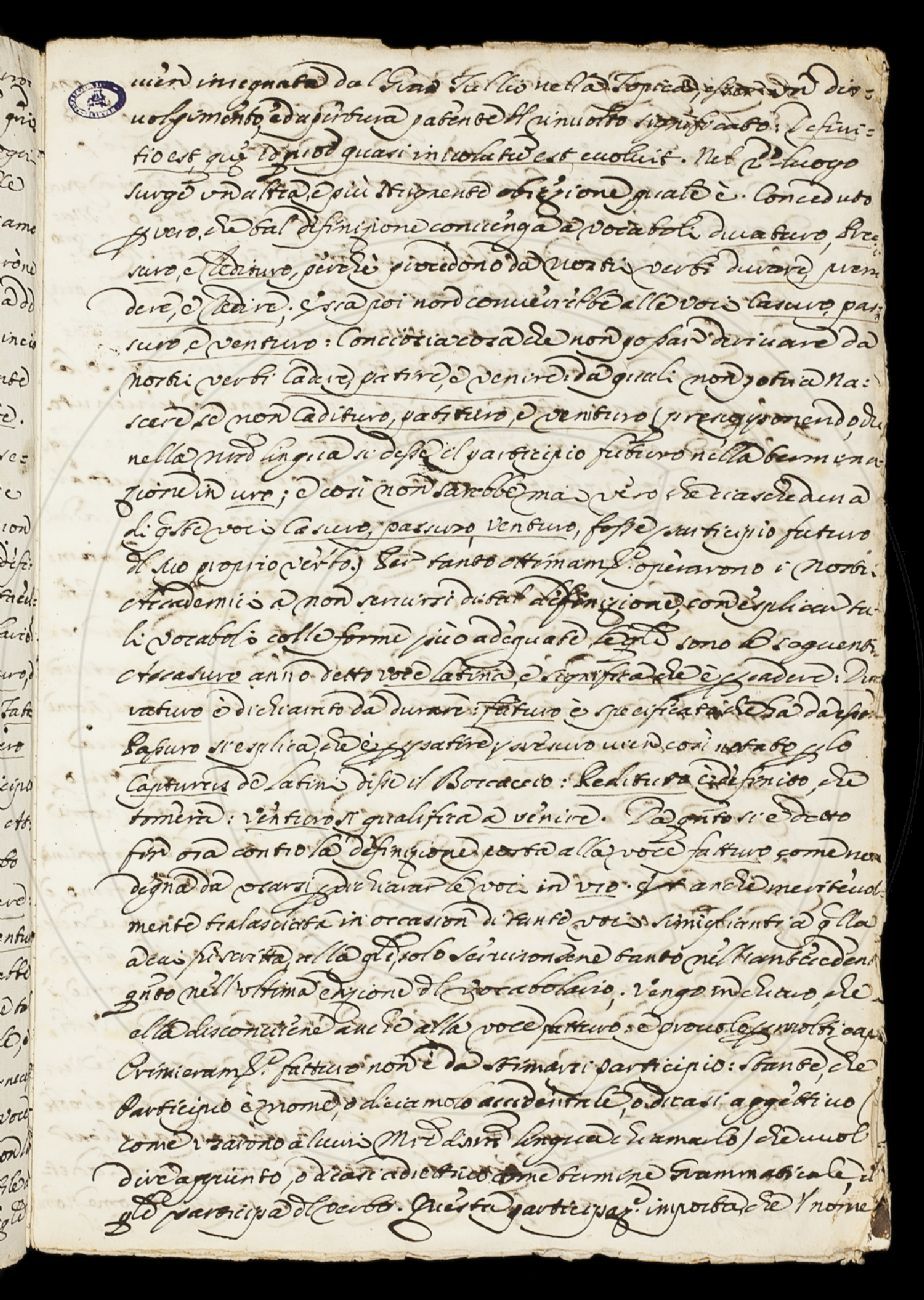 vien insegnata dal Gran Tullio nella Topica, essere un di=
volgimento, ed apertura patente del rinvolto significato: Defini=
tio est, quæ id quod quasi involutum est evolvit. Nel 2º luogo
surge un'altra, e più strignente obiezione quale è. Conceduto
per vero, che tal definizione convenga a' vocaboli duraturo, Pre=
suro, e Redituro, perchè procedono da' nostri verbi durare, pren
dere, e Redire; essa poi non converrebbe alle voci Casuro, pas=
suro, e venturo: Conciosiacosa che non possan derivare da'
nostri verbi Cadere, patire, e venire: da' quali non potria Na=
scere se non Cadituro, patituro, e venituro (presupponendo, che
nella nostra lingua si desse il participio futuro nella termina
zione in uro; e così non sarebbe mai vero che ciascheduna
di queste voci Casuro, passuro, venturo, fosse participio futuro
del suo proprio verbo.) Per tanto ottimamente operarono i Nostri
Accademici a non servirsi di tal definizione, con esplicar ta
li vocaboli colle forme più adeguate le quali sono le seguenti
A Casuro anno detto voce latina, e significa che è per cadere: Du
raturo è dichiarato da durare: futuro è specificato che ha da essere
Passuro si esplica, che è per patire, presuro vien così notato per lo
Capturus de' latini disse il Boccaccio: Redituro è definito, che
tornerà: venturo si qualifica a venire. Da quanto si è detto
fin ora contro la definizione posta alla voce fatturo come non
degna da usarsi per dichiarar le voci in uro. Et anche meritevol
mente tralasciata in occasione di tante voci simiglianti a quella
a cui fu scritta, della quale solo servironsene tanto nell'antecedente
quanto nell'ultima edizione del Vocabolario; Vengo in chiaro, che
ella disconviene anche alla voce fatturo; e provolo per molti capi
Primieramente fatturo non è da stimarsi participio: stante, che
Participio è nome, o diciamolo accidentale, o dicasi aggettivo (
come usarono alcuni Maestri di nostra lingua chiamarlo) che vuol
dire aggiunto, o dicasi adiettivo come termine Grammaticale, il
quale partecipa del verbo. Questa participazione importa, che 'l nome